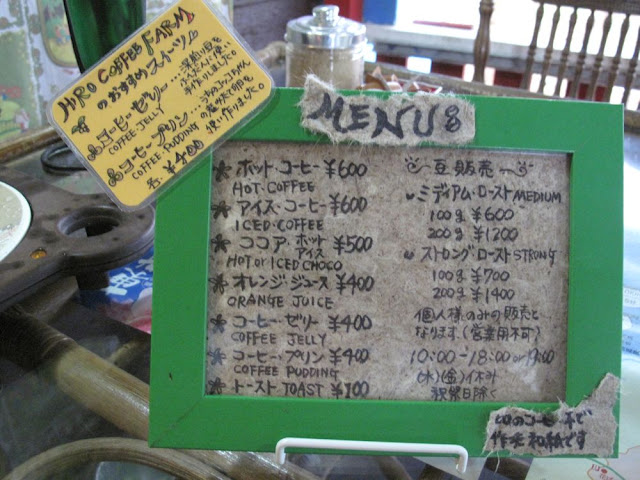 HIRO COFFEE FARM
のおすすめスイーツ
コーヒー・ゼリー
COFFEE・JELLY
コーヒー・プリン
COFFEE PUDDING
各：¥400
使い作りました
MENU
ホット・コーヒー ¥600
HOT・COFFEE
アイス・コーヒー ¥600
ICED・COFFEE
ココア・ホット アイス ¥500
HOT or ICED CHOCO
オレンジ・ジュース ¥400
ORANGE JUICE
コーヒー・ゼリー ¥400
COFFEE JELLY
コーヒー・プリン ¥400
COFFEE PUDDING
トースト TOAST ¥100
豆販売
ミディアム・ロースト MEDIUM
100g ¥600
200g ¥1200
ストロング・ロースト STRONG
100g ¥700
200g ¥1400
個人様のみの販売と
なります(営業用不可)
10:00-18:00 or 19:00
(水)(金)休み
祝祭日除く
のコーヒー
作った和紙です